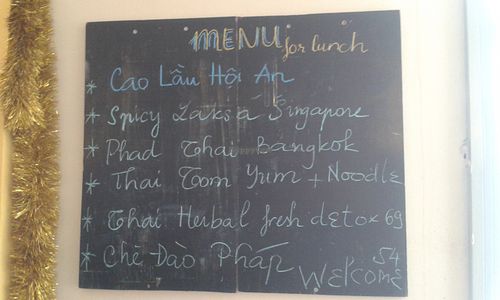 MENU for lunch
* Cao Lầu Hội An
* Spicy Laksa Singapore
* Phad Thai Bangkok
* Thai Tom Yum + Noodle
* Thai Herbal fresh detox 69
* Chè Đào Pháp 54
WELCOME